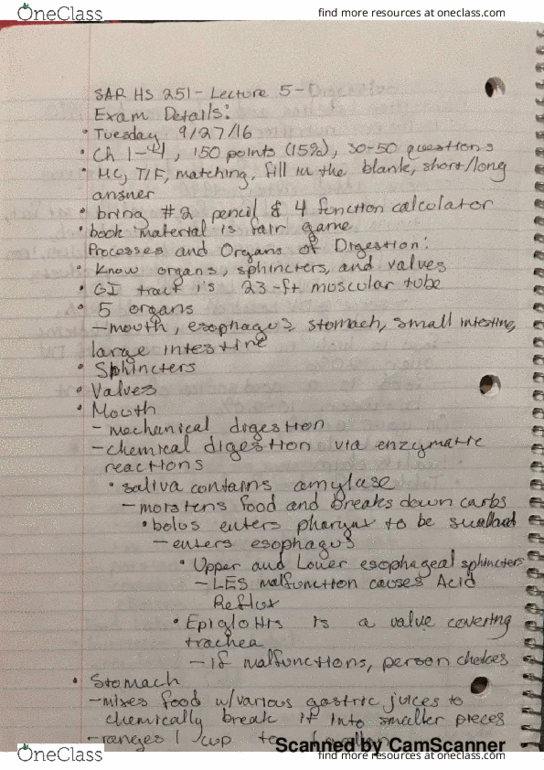 OneClass
find more resources at oneclass.com
SAR HS 251 - Lecture 5 -
Exam Details:
• Tuesday 9/27/16
• Ch 1-4, 150 points (15%), 30-50 questions
• MC, T/F, matching, fill in the blank, short/long
answer
• bring #2 pencil & 4 function calculator
• book material is fair game
Processes and Organs of Digestion:
• Know organs, sphincters, and valves
• GI tract is 23-ft muscular tube
• 5 organs
- mouth, esophagus, stomach, small intestine,
large intestine
• Sphincters
• Valves
• Mouth
- mechanical digestion
- chemical digestion via enzymatic
reactions
• saliva contains amylase
- moistens food and breaks down carbs
• bolus enters pharynx to be swallowed
- enters esophagus
• Upper and Lower esophageal sphincters
- LES malfunction causes Acid
Reflux
• Epiglottis is a valve covering
trachea
- if malfunctions, person chokes
• Stomach
- mixes food w/various gastric juices to
chemically break it into smaller pieces
- ranges 1 cup to
Scanned by CamScanner
OneClass
find more resources at oneclass.com